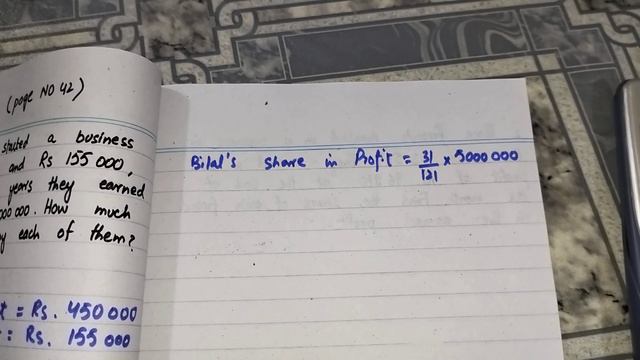 (page NO 42)
started a business
and Rs 155 000,
years they earned
000 000. How much
each of them?
= Rs. 450 000
= Rs. 155 000
Bilal's share in Profit = 31/121 x 5000 000